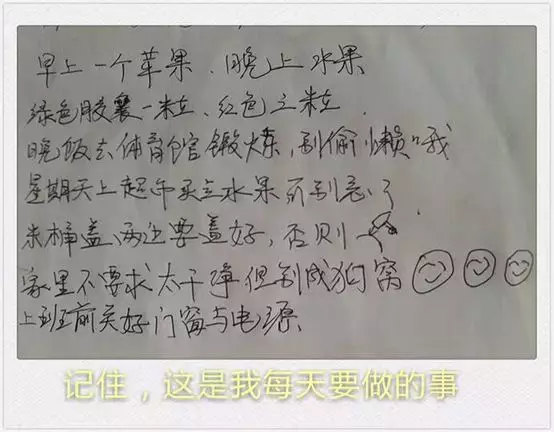 早上一个苹果、晚上水果
绿色胶襄一粒、红色三粒
晚饭去体育馆锻炼,别偷懒哦
星期天上超市买点水果 别忘了
米桶盖、两边要盖好,否则
家里不要求太干净但别成狗窝
上班前关好门窗与电源
记住,这是我每天要做的事